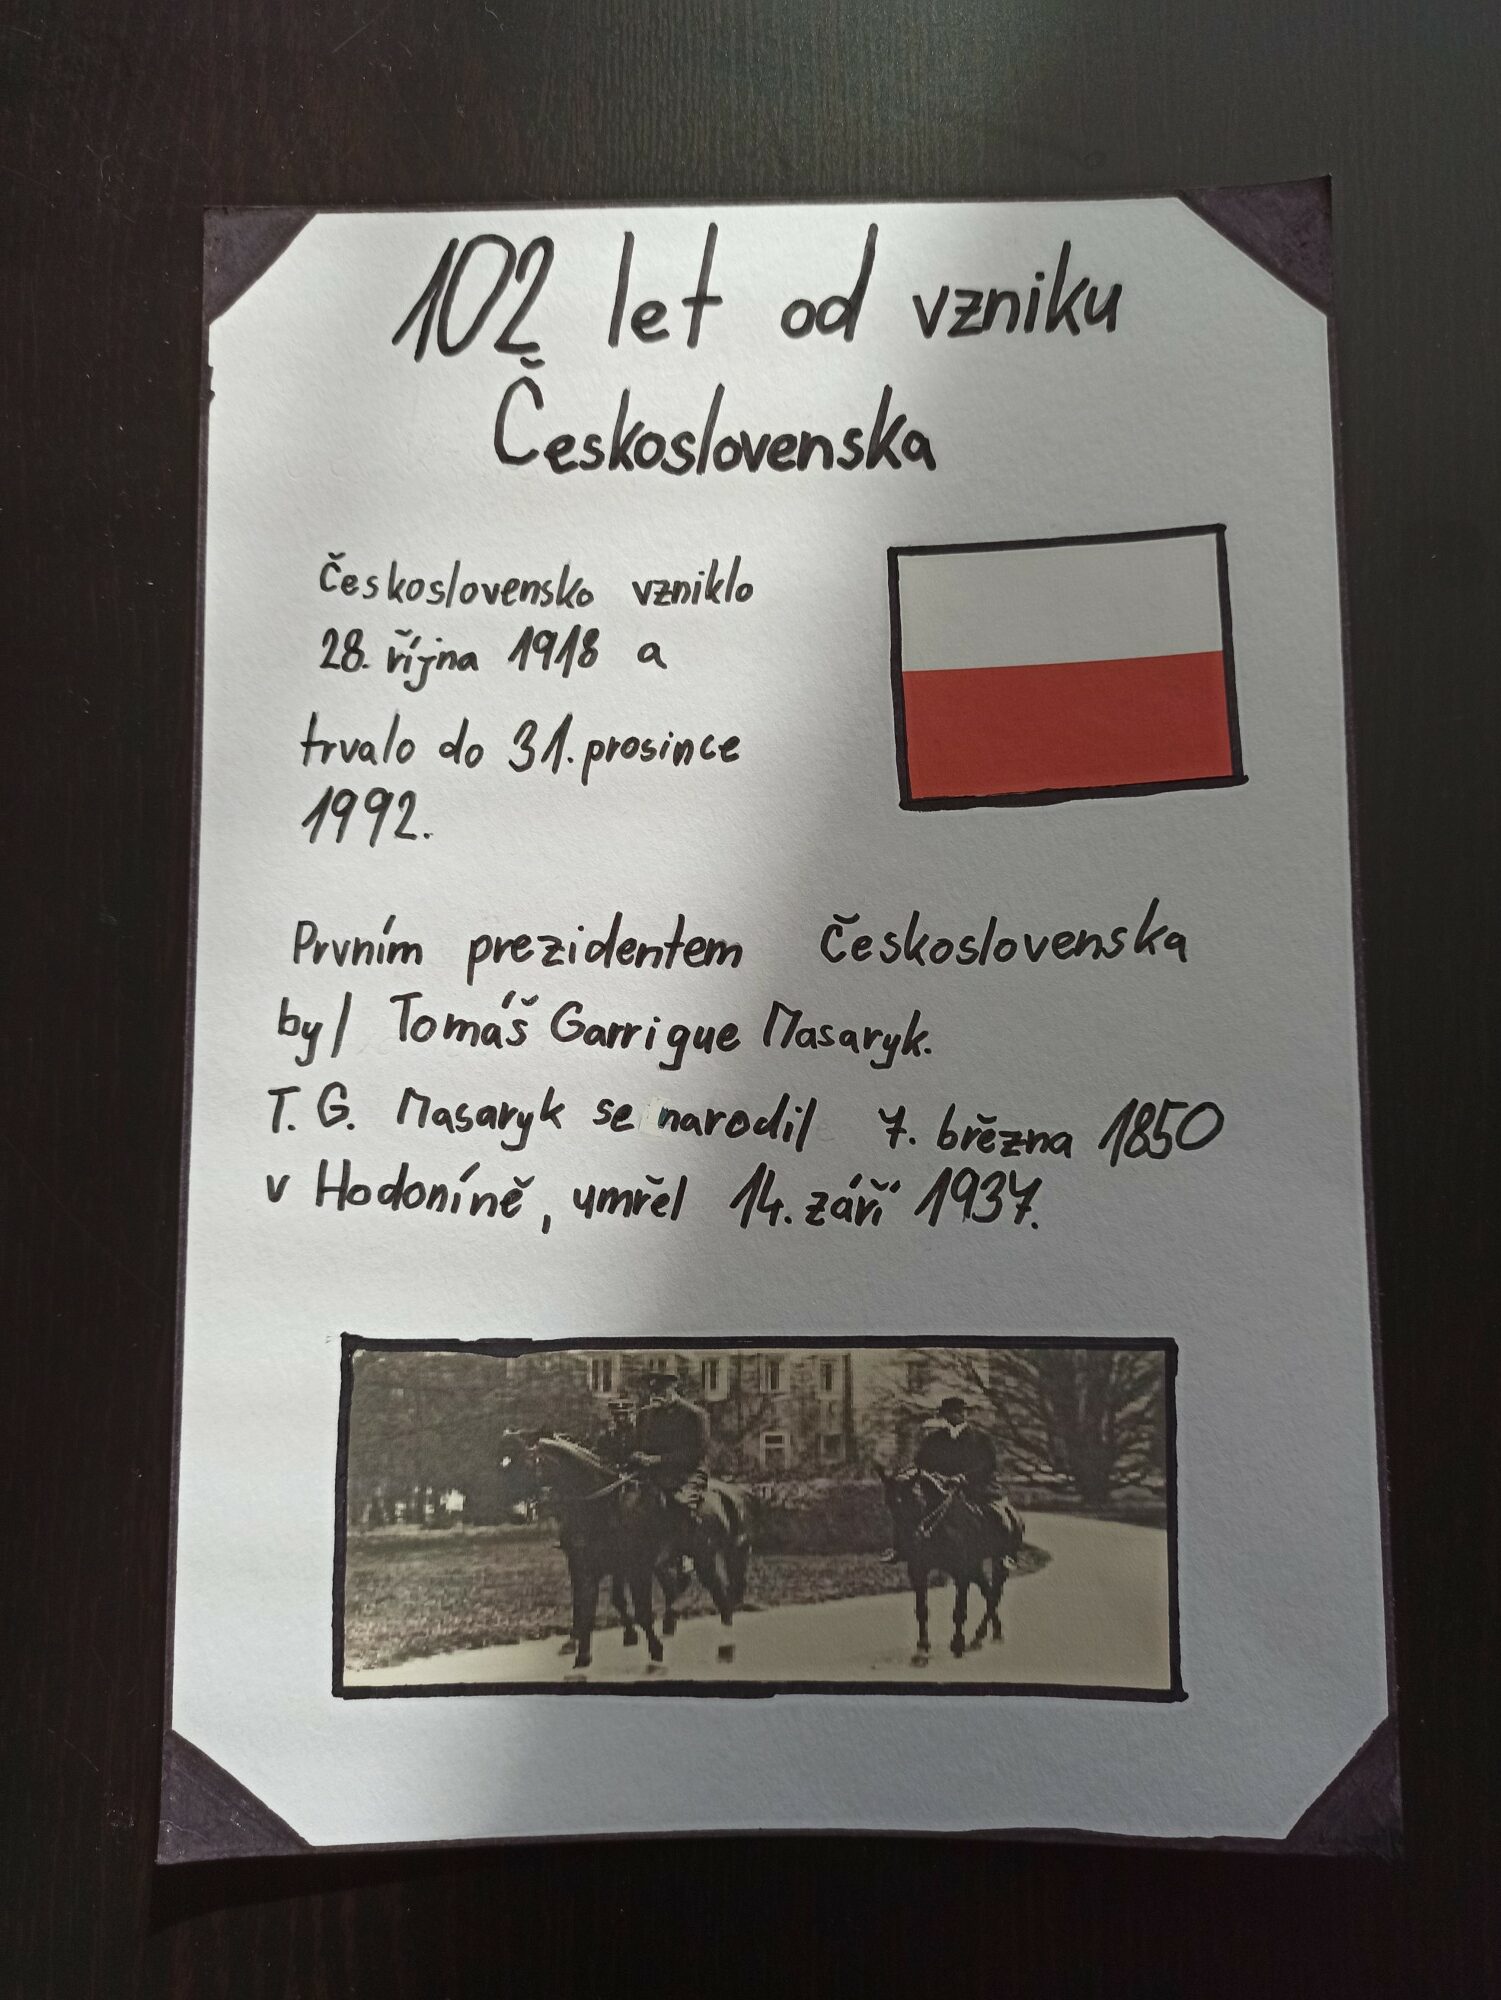 102 let od vzniku
Československa
Československo vzniklo
28. října 1918 a
trvalo do 31. prosince
1992.
Prvním prezidentem Československa
byl Tomáš Garrigue Masaryk.
T. G. Masaryk se narodil 7. března 1850
v Hodoníně, umřel 14. září 1937.